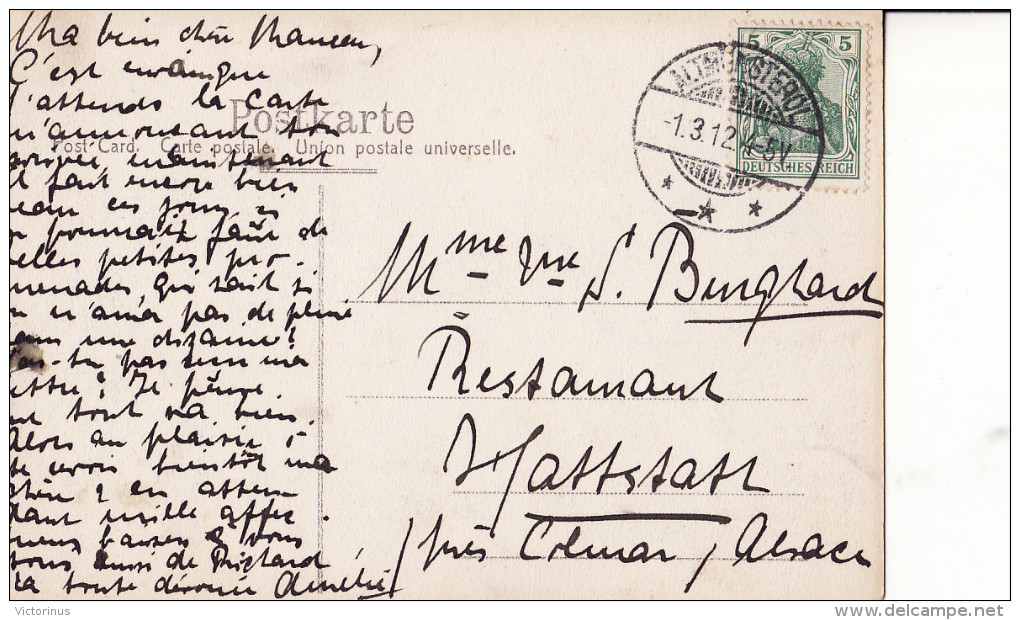 Ma bien chère Maman,
C'est
J'attends la carte
m'annonçant ton
arrivée maintenant
il fait encore bien
beau ces jours ci
on pourrait faire de
belles petites pro-
menades, qui sait si
on n'aura pas de pluie
dans une dizaine!
N'as-tu pas reçu ma
lettre? Je
tout va bien.
Alors au plaisir de
te revoir bientôt ma
chère & en atten-
dant mille affec.
bons baisers à vous
tous aussi de Richard
ta toute dévouée Amélie
Postkarte
Post Card. Carte postale. Union postale universelle.
ALTMÜNSTEROL
-1.3.12. 4-5N.
5 5
DEUTSCHES REICH
Mme Vve S. Burghard
Restaurant
Hattstatt
près Colmar, Alsace
Victorinus
delcampe.net